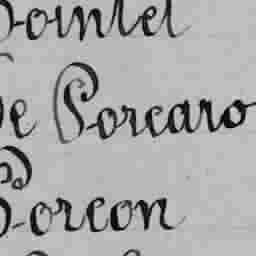 Pointel
De Porcaro
Porcon